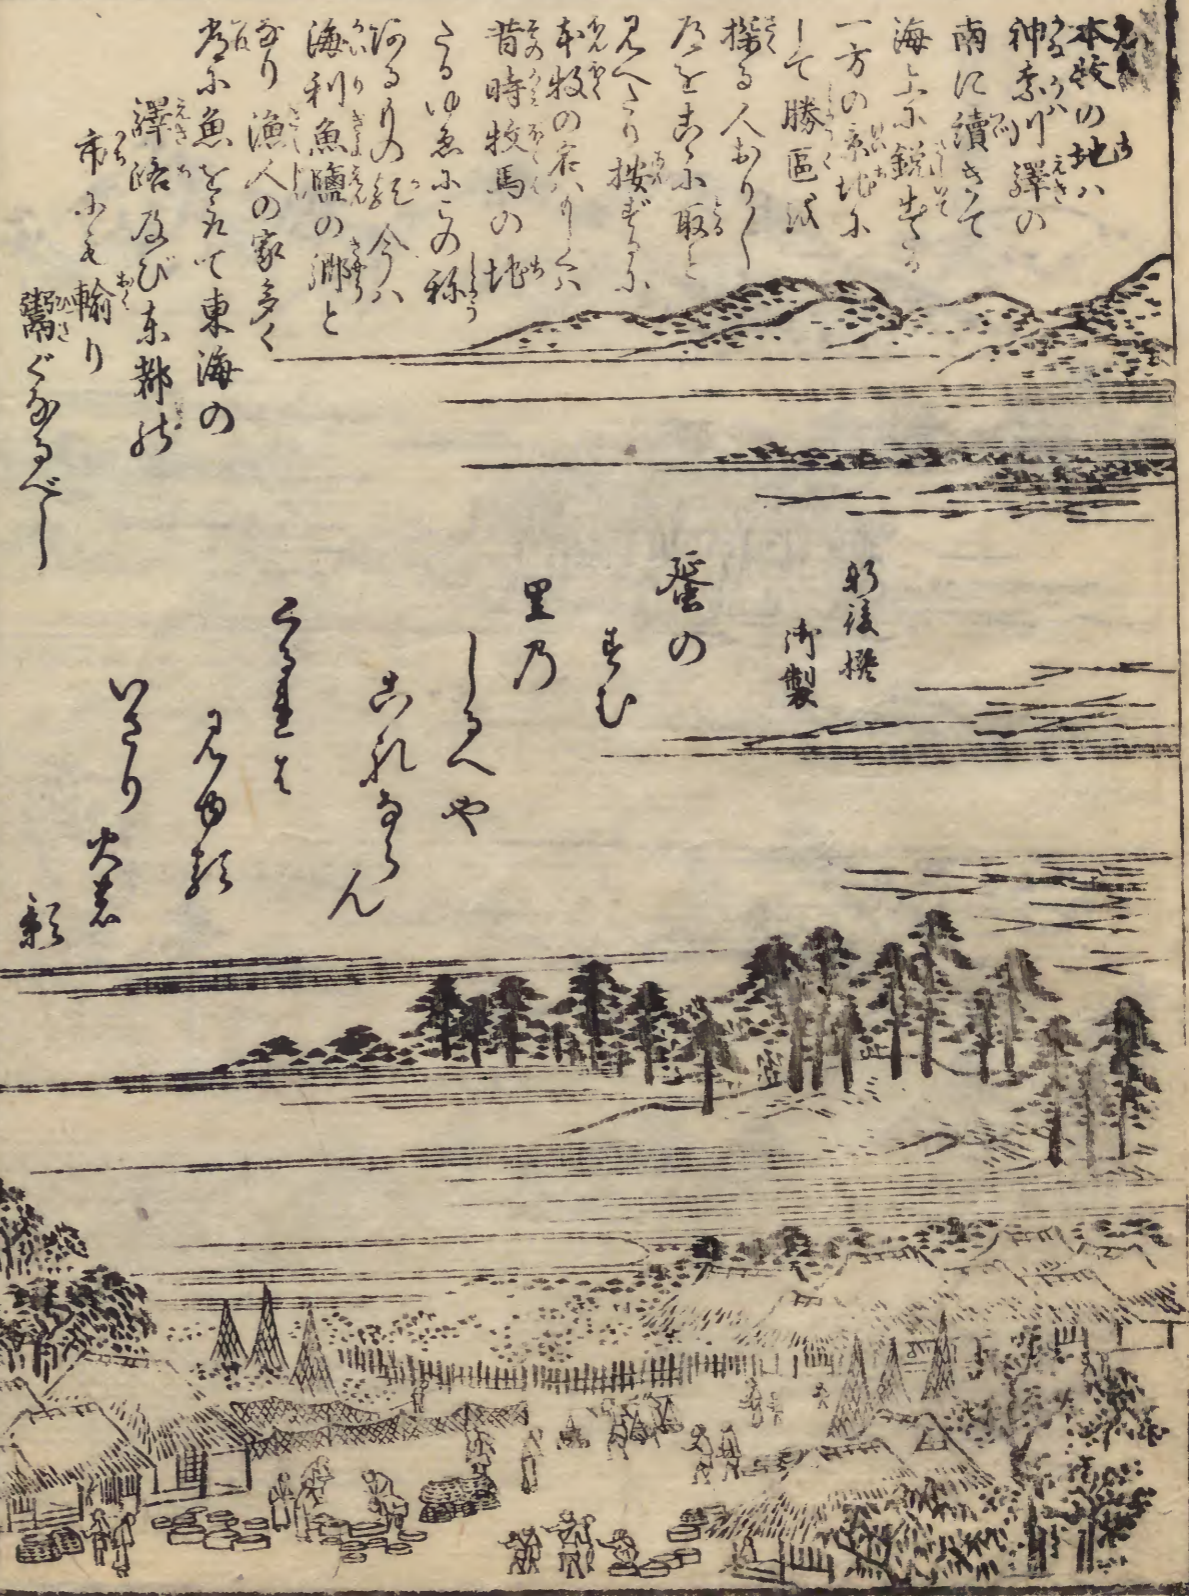 本牧の地ハ
神奈川驛の
南に續きて
海上に鋭出する
一方の勝地に
して勝區を
探る人おり〳〵
杖をこゝに取と
見へたり按ずるに
本牧の名ハ
昔時牧馬の地
たるゆゑにこの称
あるもの歟今ハ
海利魚鹽の湖と
なり漁人の家多く
常に魚を取て東海の
驛路及び東都の
市にも輸り
鬻ぐなるべし
新後撰
御製
蜑の
すむ
里乃
しるへや
これならん
くるれは
見ゆる
いさり
火の
影